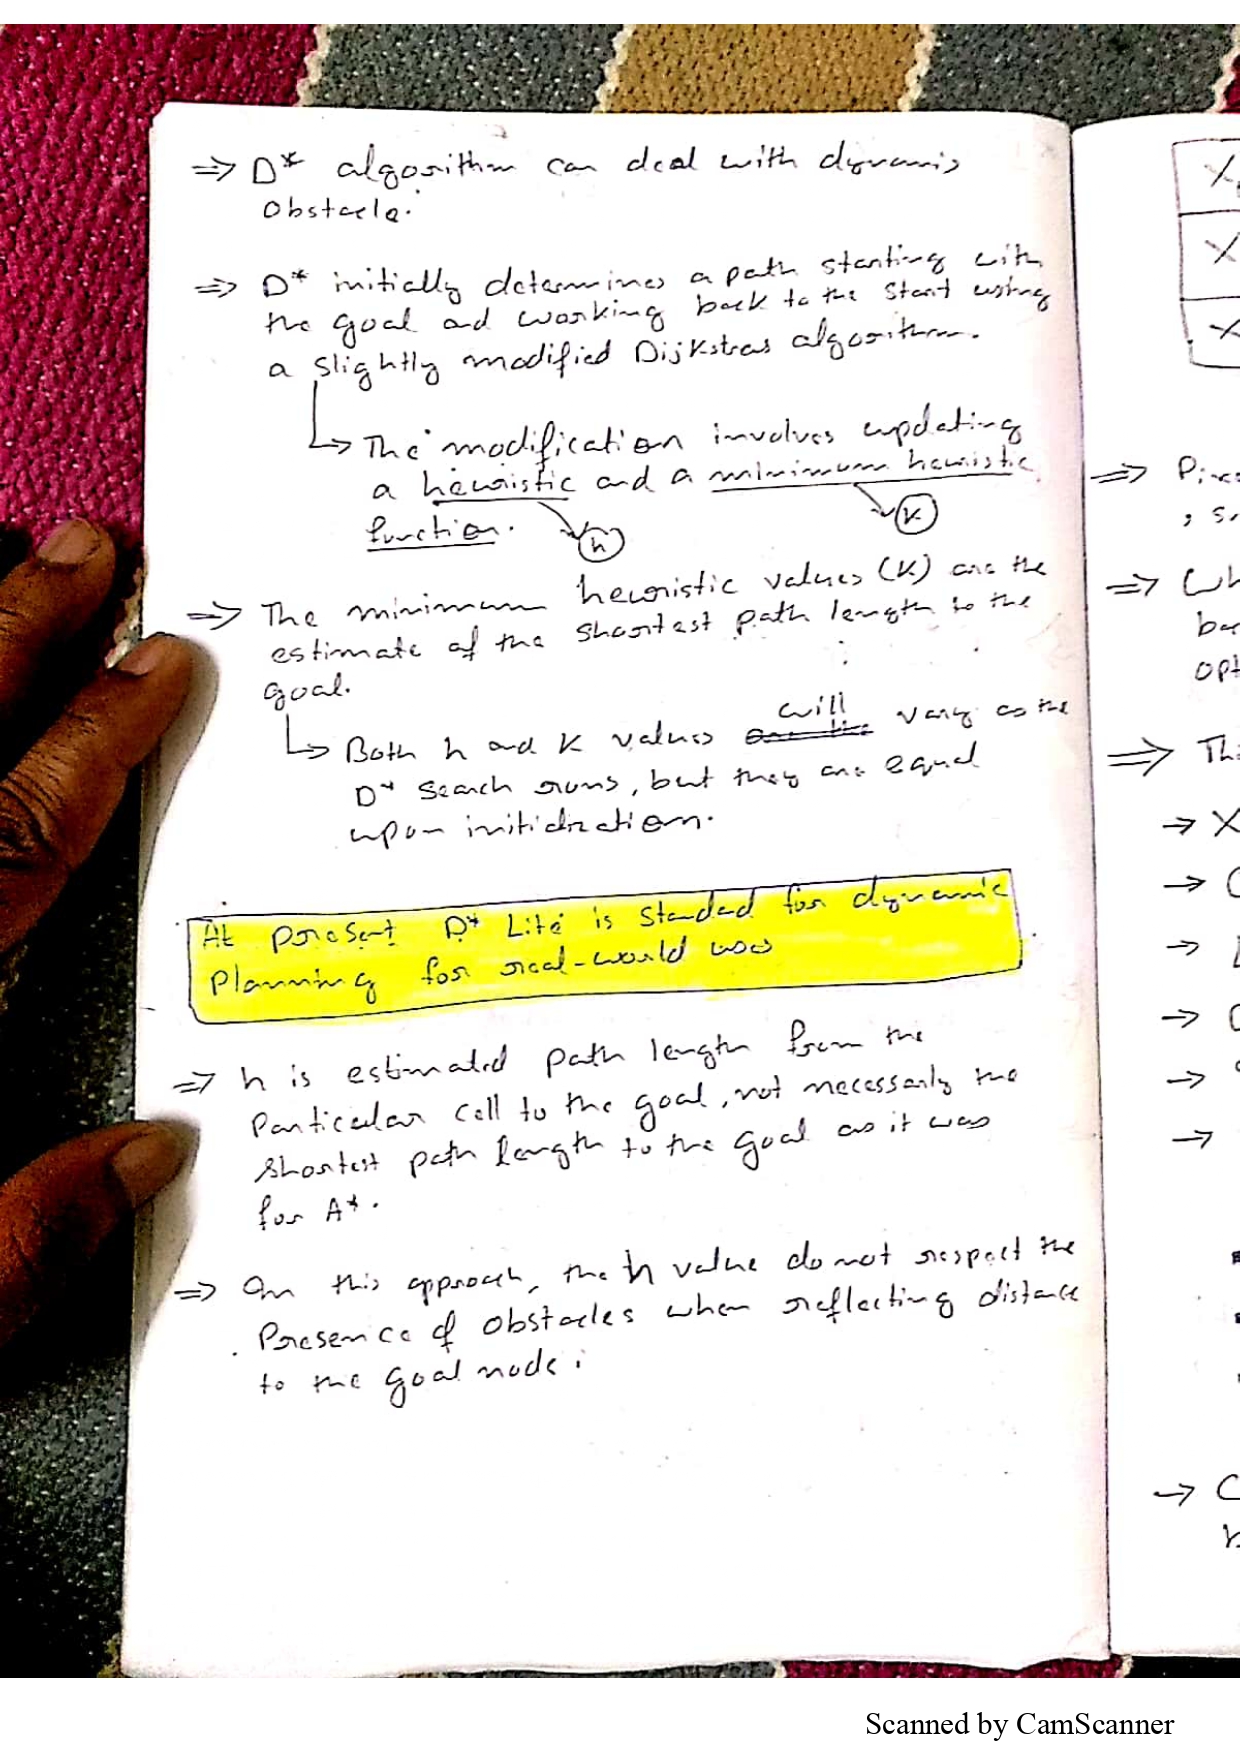 ⇒ D* algorithm can deal with dynamic
obstacle.
⇒ D* initially determines a path starting with
the goal and working back to the start using
a slightly modified Dijkstras algorithm.
↳ The modification involves updating
a heuristic and a minimum heuristic
function.
h
k
⇒ The minimum heuristic values (K) are the
estimate of the shortest path length to the
goal.
↳ Both h and K values will vary as the
D* search runs, but they are equal
upon initialization.
At present D* Lite is standard for dynamic
planning for real-world uses
⇒ h is estimated path length from the
particular cell to the goal, not necessarily the
shortest path length to the goal as it was
for A*.
⇒ In this approach, the h value do not respect the
presence of obstacles when reflecting distance
to the goal node.
X
X
X
⇒
, S
⇒ Wh
ba
opt
⇒ Thi
→ X
→
→
→
→
→
→ C
b
Scanned by CamScanner